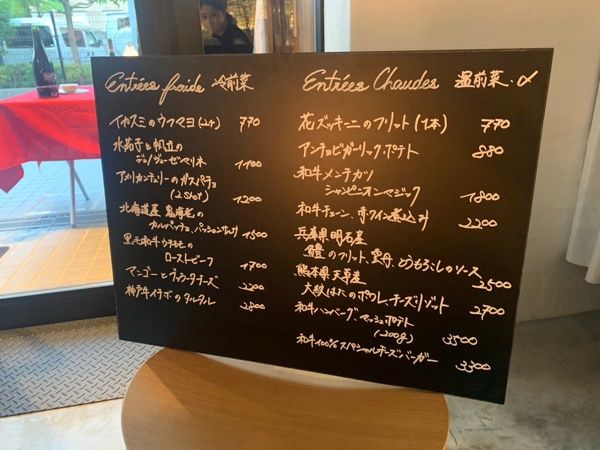 Entrées froide 冷前菜
イカスミのウフマヨ(2ケ) 770
水茄子と帆立の
ジェノヴェーゼマリネ 1100
アメリカンチェリーのガスパチョ
(2shot) 1200
北海道産 鬼海老の
カルパッチョ、パッションヴィネ 1500
黒毛和牛ウチモモの
ローストビーフ 1700
マンゴーとブッラータチーズ 2200
神戸牛イチボのタルタル 2800
Entrées Chaudes 温前菜
花ズッキーニのフリット(1本) 770
アンチョビガーリックポテト 880
和牛メンチカツ
シャンピニオンマジック 1800
和牛チレーン、赤ワイン煮込み 2200
兵庫県明石産
鱧のフリット、雲丹、とうもろこしのソース
2500
熊本県天草産
大紋はたのポワレ、チーズリゾット 2700
和牛ハンバーグ、マッシュポテト
(200g) 3500
和牛100%スペシャルチーズバーガー 3300